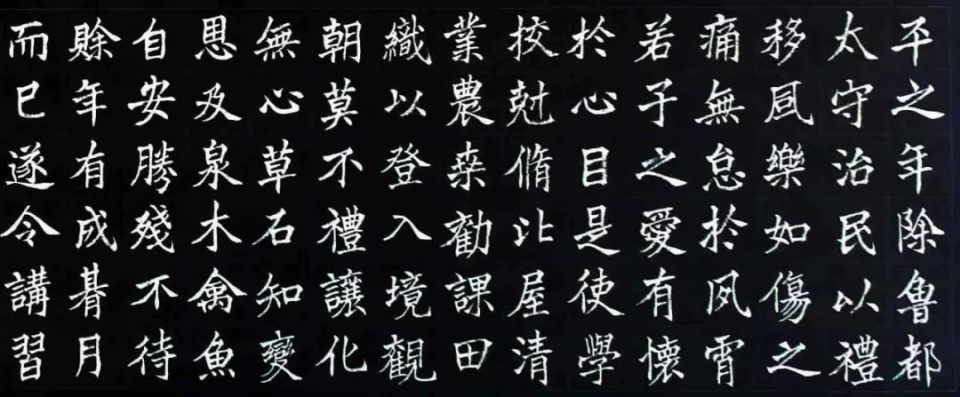 平之年除魯都
太守治民以禮
移風樂如傷之
痛無怠於夙宵
若子之愛有懷
於心目是使學
校尅脩比屋清
業農桒勸課田
織以登入境觀
朝莫不禮讓化
無心草石知變
思及泉木禽魚
自安勝殘不待
賒年有成朞月
而已遂令講習